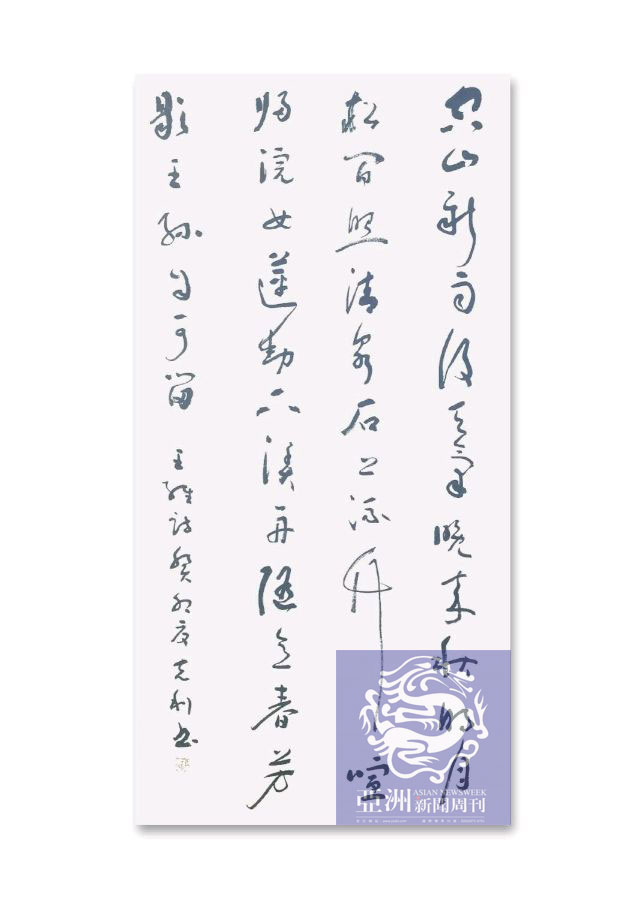 空山新雨後天氣晚來秋明月
松間照清泉石上流竹喧
歸浣女蓮動下漁舟隨意春芳
歇王孫自可留
王維詩癸卯夏克利書
亞洲新聞周刊
ASIAN NEWSWEEK